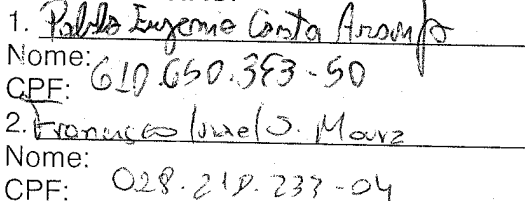 1. Pablo Eugenio Costa Araujo
Nome:
CPF: 610.650.353-50
2. Francisco S. Moura
Nome:
CPF: 028.210.233-04